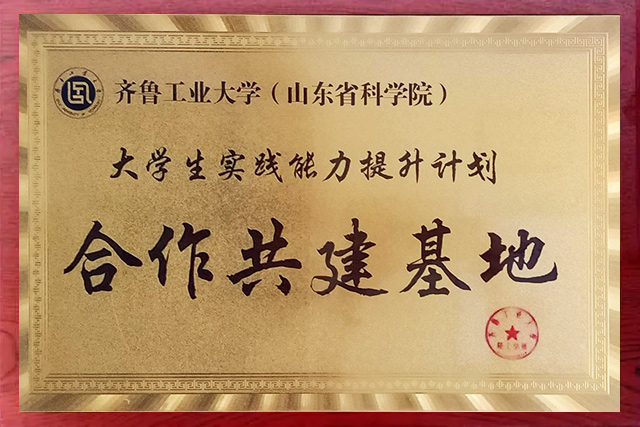 齐鲁工业大学（山东省科学院）
大学生实践能力提升计划
合作共建基地